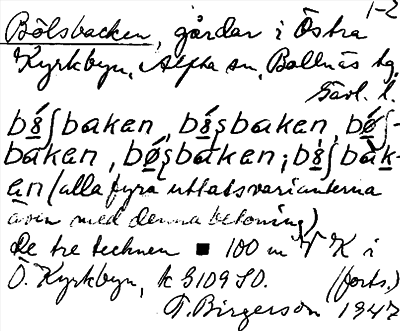 1-2
Bölsbacken, gårdar i Östra
Kyrkbyn, Alfta sn, Bollnäs tg.
Gävl. l.
bo̲ʃbaken, bo̲sbaken, bø̲ʃ-
baken, bø̲sbaken; bo̲ʃbàk-
en (alla fyra uttalsvarianterna
även med denna betoning)
De tre tecknen ■ 100 m V K i
Ö. Kyrkbyn, k 3109 SO. (forts.)
F. Birgerson 1947